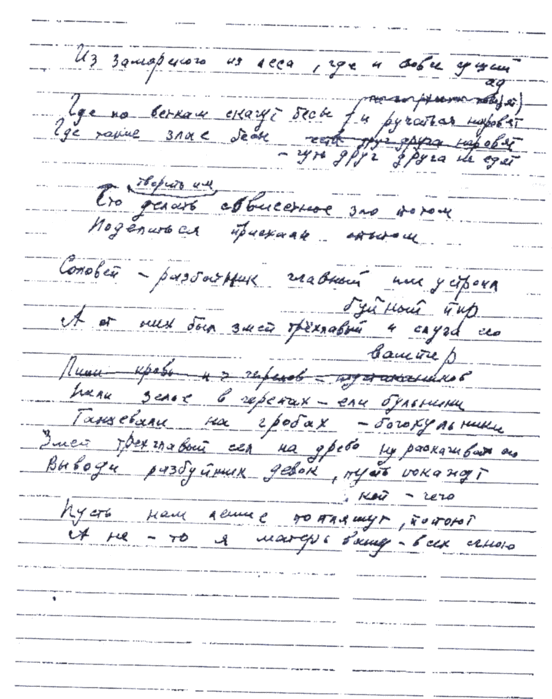 Из заморского из леса, где и вовсе сущий
ад
Где по веткам скачут бесы и ручаться норовят
Где такие злые бесы есть друг друга норовят
- чуть друг друга не едят
творить им
Что делать совместное зло потом
Поделиться приехали опытом
Соловей - разбойник главный им устроил
буйный пир
А от них был змей трёхглавый и слуга его
вампир
Пили кровь из черепов -
Пили зелье в черепах - ели бульники
Танцевали на гробах - богохульники
Змей трехглавый сел на древо ну раскачивать его
Выводи разбуйник девок, пусть покажут
кой - чего
Пусть нам лешие попляшут, попоют
А не - то я матерь вашу - всех сгною